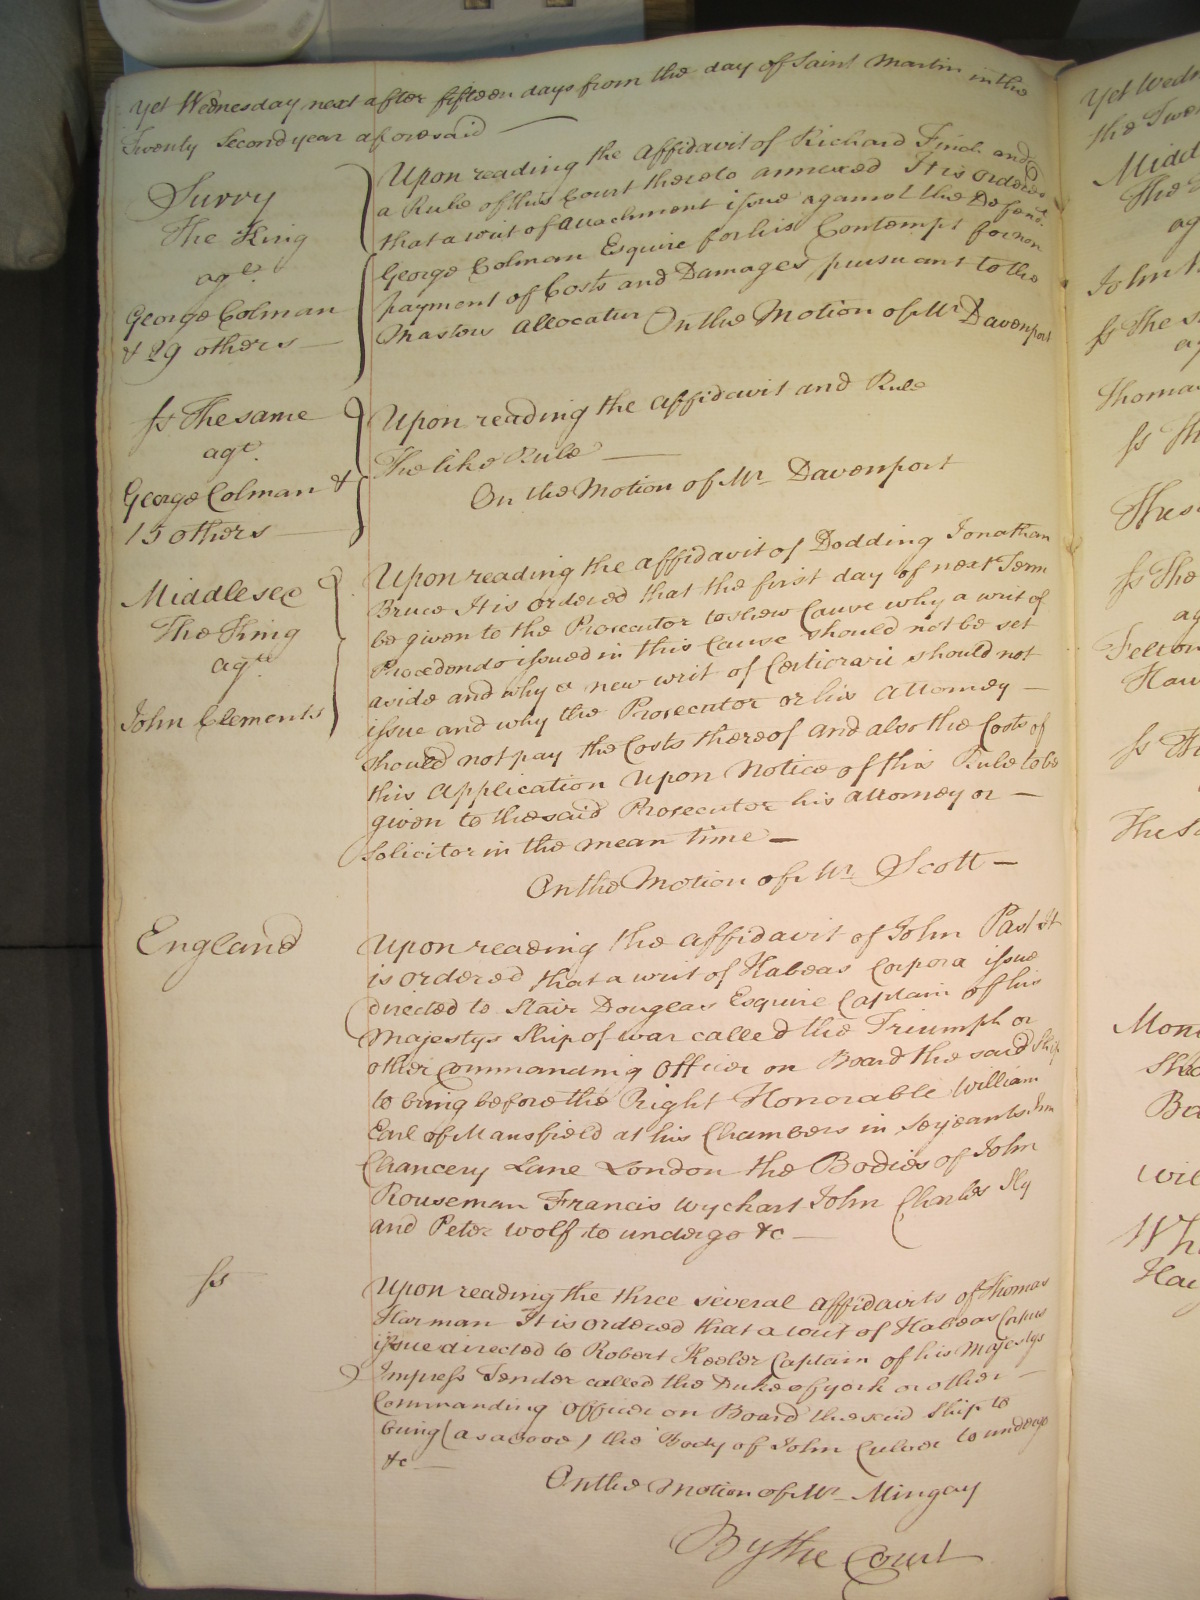 Yet Wednesday next after fifteen days from the day of Saint Martin in the
Twenty Second year aforesaid
Surry
The King
agt.
George Colman
& 29 others
Upon reading the Affidavit of Richard Finch and
a Rule of this Court thereto annexed It is ordered
that a writ of attachment issue against the Defend.t
George Colman Esquire for his Contempt for non
payment of Costs and Damages pursuant to the
Masters Allocatur On the Motion of Mr Davenport
Ss The same
agt.
George Colman &
15 others
Upon reading the affidavit and Rule
The like Rule
On the Motion of Mr Davenport
Middlesex
The King
agt.
John Clements
Upon reading the affidavit of Dodding Jonathan
Bruce It is ordered that the first day of next Term
be given to the Prosecutor to shew Cause why a writ of
Procedendo issued in this Cause should not be set
aside and why a new writ of Certiorari should not
issue and why the Prosecutor or his Attorney
should not pay the Costs thereof and also the Costs of
this Application Upon Notice of this Rule to be
given to the said Prosecutor his attorney or
Solicitor in the mean time
On the Motion of Mr Scott
England
Upon reading the affidavit of John It
is ordered that a writ of Habeas Corpora issue
directed to Stair Douglas Esquire Captain of his
Majestys Ship of war called the Triumph or
other Commanding Officer on Board the said Ship
to bring before the Right Honorable William
Earl of Mansfield at his Chambers in Serjeants Inn
Chancery Lane London the Bodies of John
Rouseman Francis Wychart John Charles Sly
and Peter Wolf to undergo &c
Ss
Upon reading the three several affidavits of Thomas
Harman It is ordered that a writ of Habeas Corpus
issue directed to Robert Keeler Captain of his Majestys
Impress Tender called the Duke of York or other
Commanding Officer on Board the said Ship to
bring (as above) the Body of John Culver to undergo
&c
On the Motion of Mr Mingay
By the Court
Yet Wedn
the Twe
Midd
The
ag
John
Ss The s
ag
Thomas
Ss Th
The s
Ss The
ag
Felton
Haw
Ss Th
The Sa
Mon
Ba
Wil
Wh
Hay